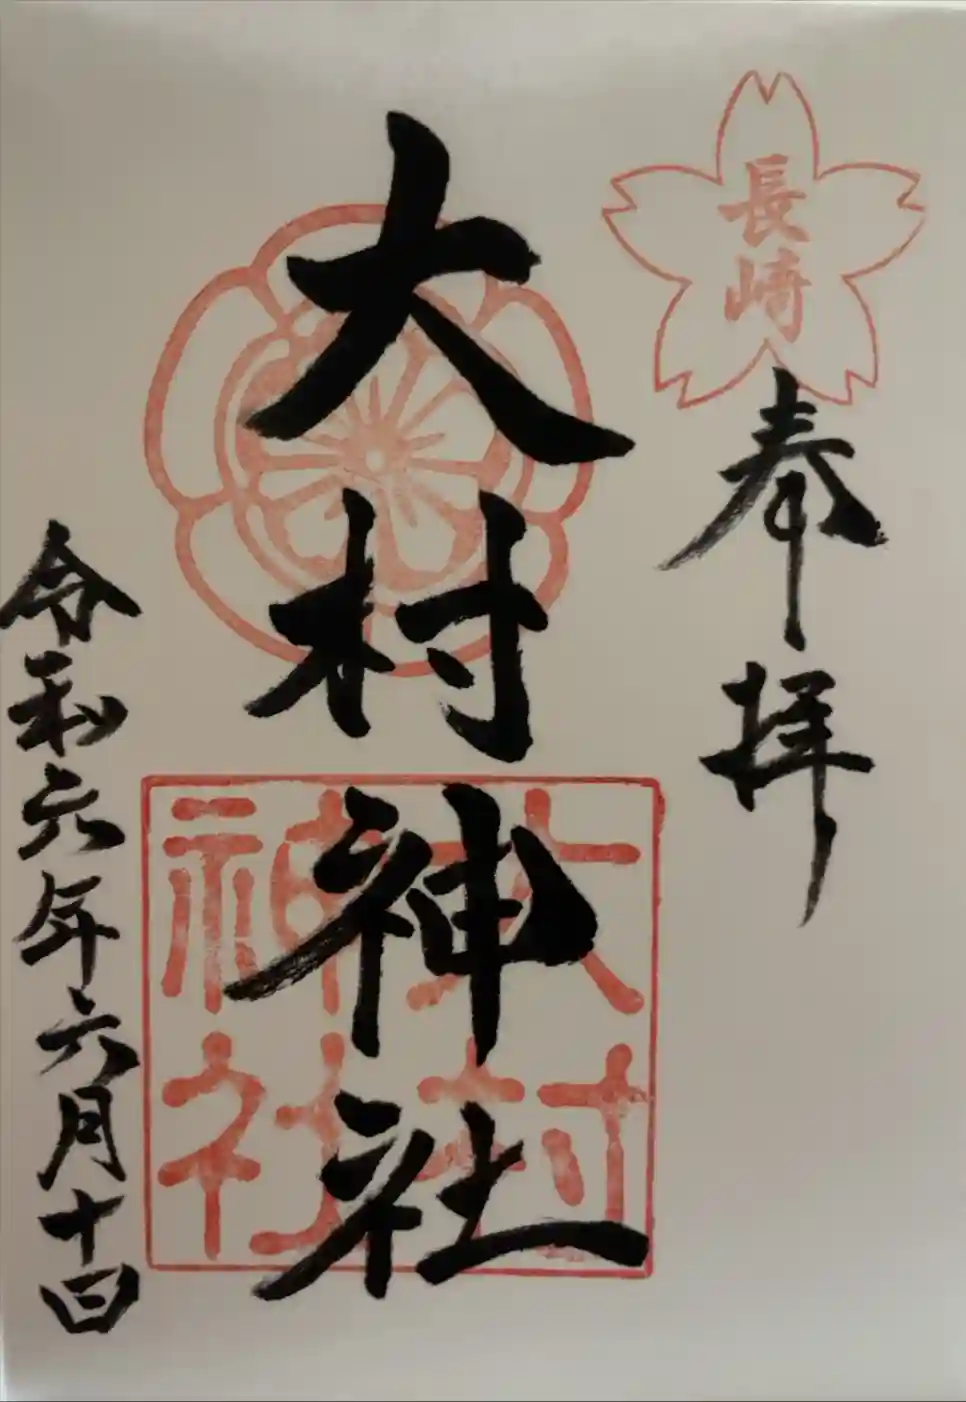 長崎
奉拝
大村神社
大村神社
令和六年六月十日